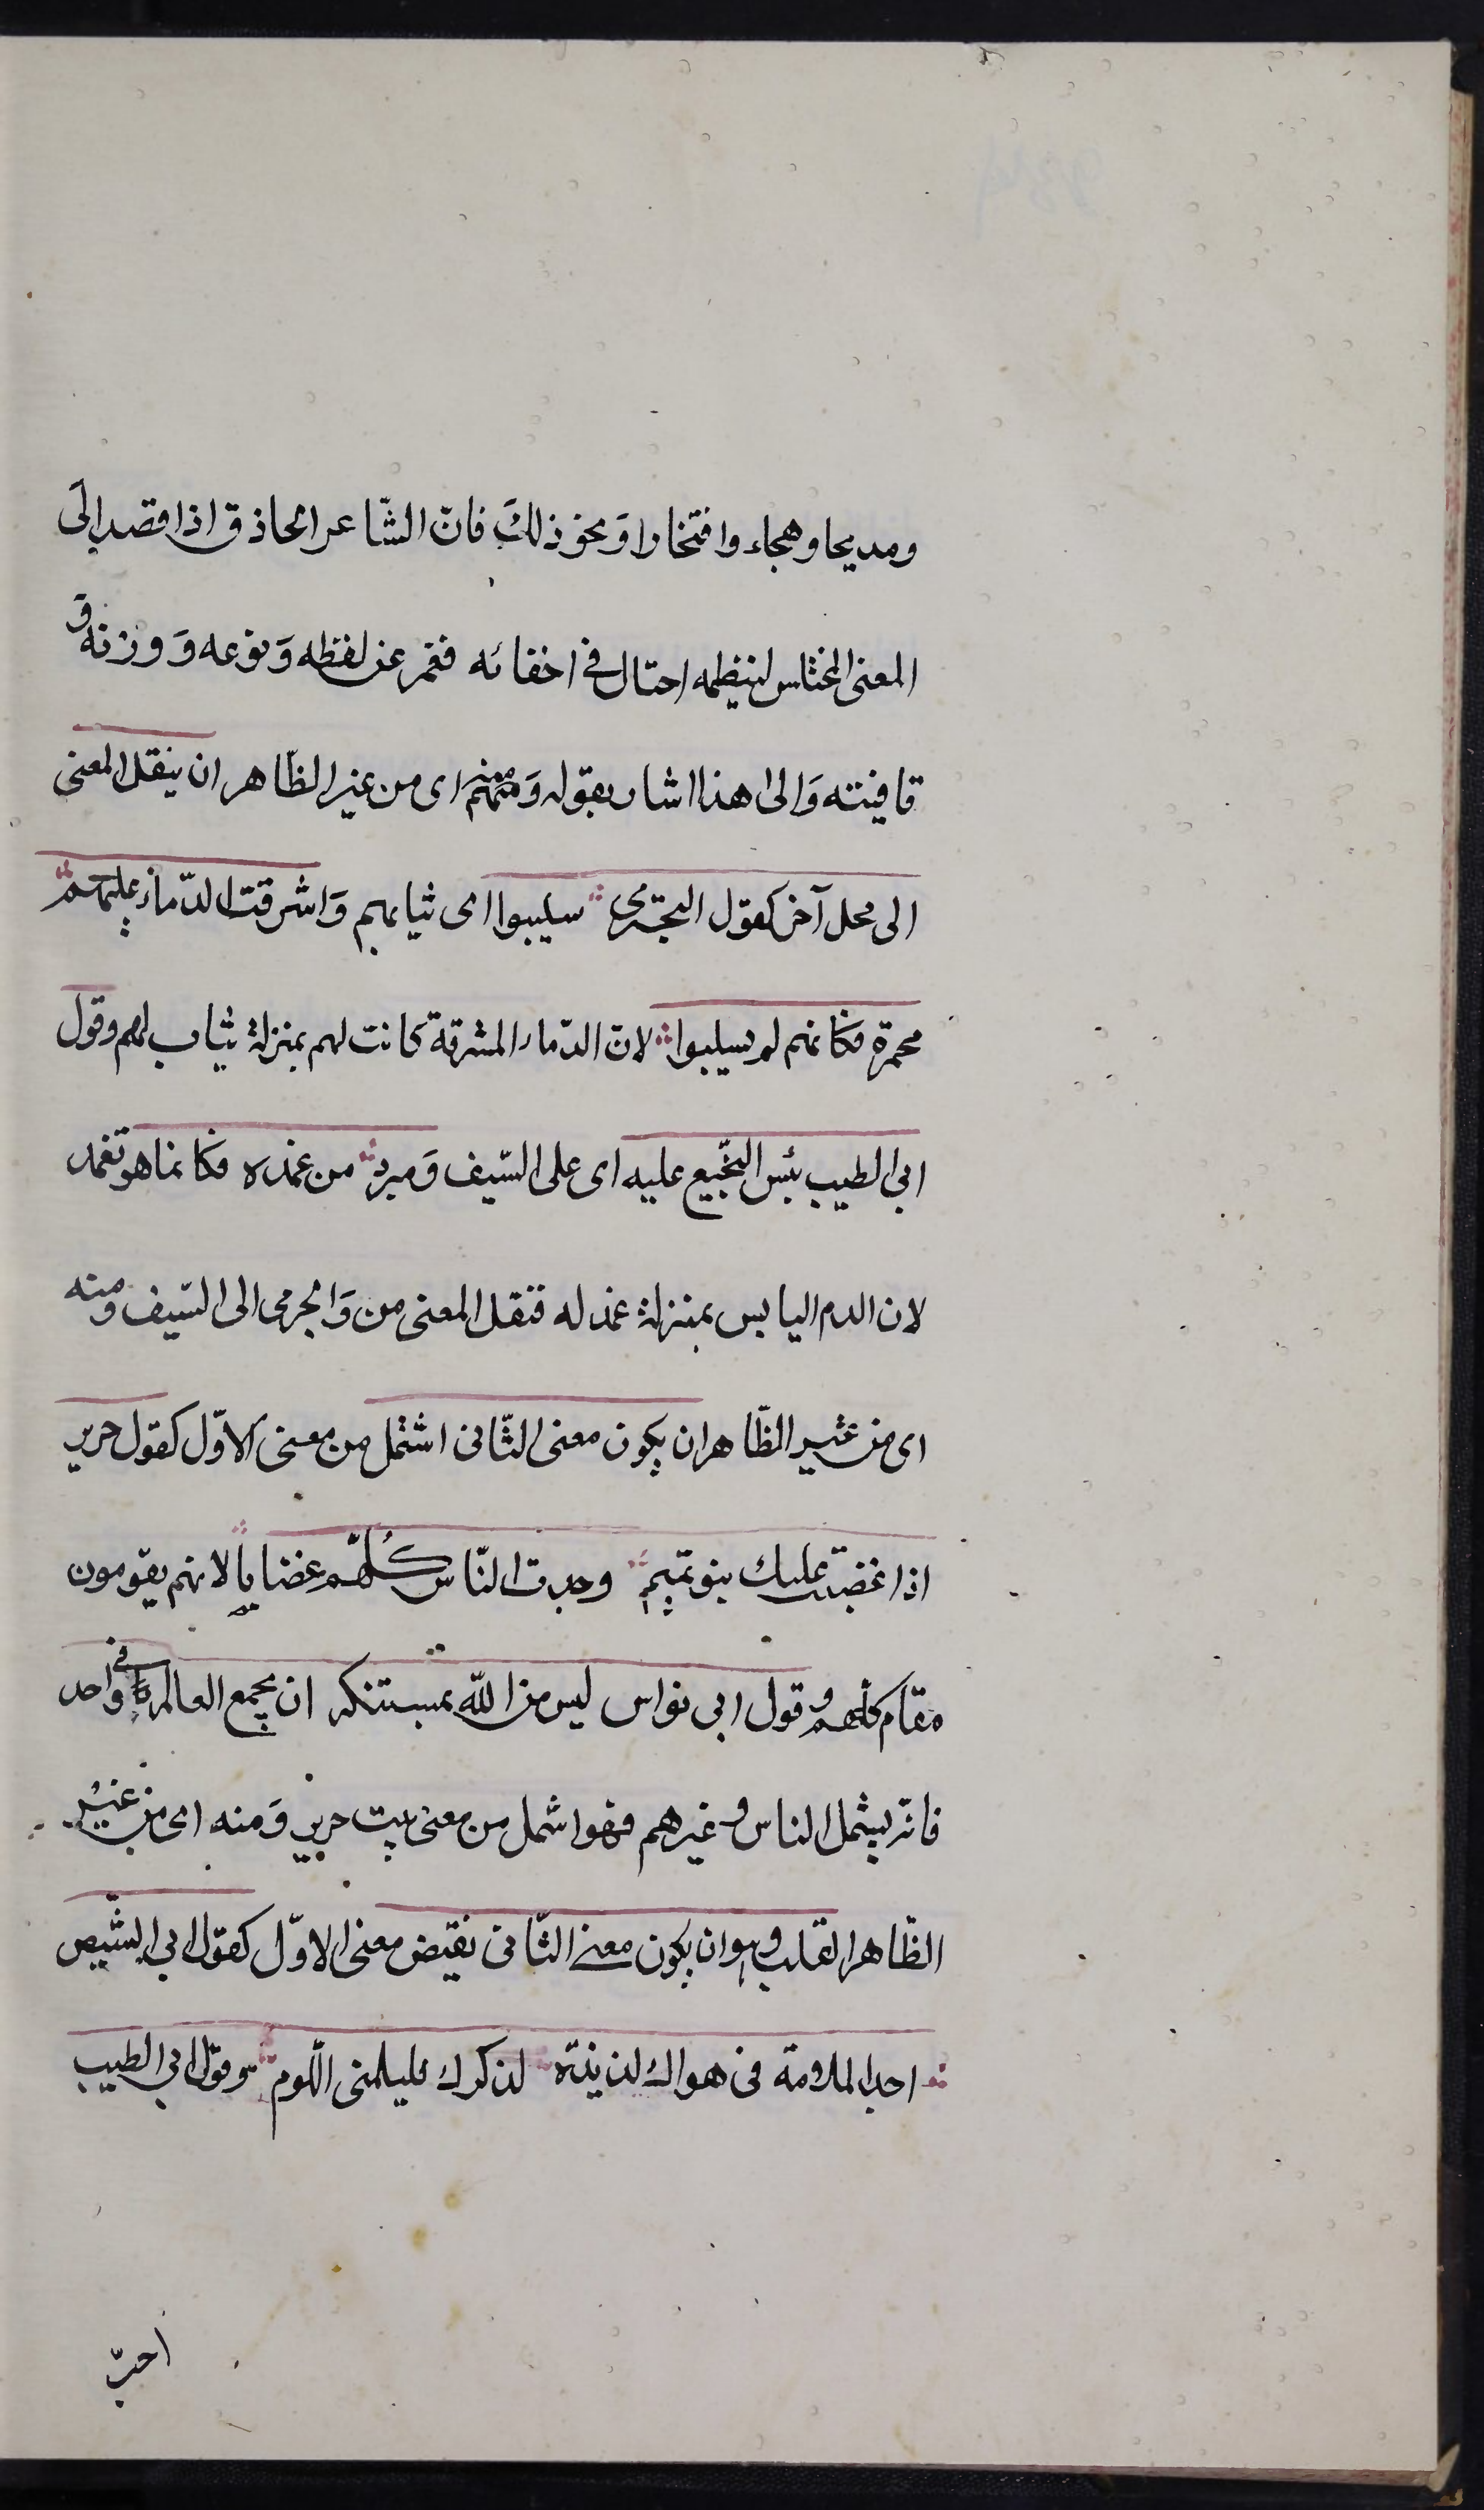 ومديحا وهجاء وافتخارا وَنحو ذلكَ فانّ الشّاعر الحاذق اذا قصد الَى
المعنى المختلس لينظمه احتال فى اخفائه فغير عن لفظه وَنوعه وَوزنه و
قافيته وَالى هذا اشار بقوله وَمنهم اى من غير الظّاهر ان ينقل المعنى
الى محل آخر كقول البحترى سلبوا اى ثيابهم وَاشرقت الدّماء عليهم
محمرة فكانهم لم يسلبوا لانّ الدّماء المشرقة كانت لهم بمنزلة ثياب لهم وقول
ابى الطيب يبس النّجيع عليه اى على السّيف وَمجرد من غمده فكانما هو تغمد
لان الدم اليابس بمنزلة غمد له فنقل المعنى من وَالجرمى الى السّيف ومنه
اى من غير الظّاهر ان يكون معنى الثّانى اشتمل من معنى الاوّل كقول جرير
اذا غضبت عليك بنو تميم وجدت النّاس كُلّهم غضابا لانهم يقومون
مقام كلهم و قول ابى نواس ليس من اللّه بمستنكر ان يجمع العالم فى واحد
فانّه يشمل الناس و غيرهم فهو اشمل من معنى بيت جرير وَمنه اى من غير
الظّاهر القلب وهو ان يكون معنى الثّانى نقيض معنى الاوّل كقول ابى الشّيص
احد الملامة فى هواك لذيذة لذكرك فليلمنى اللّوم وقول ابى الطيب
احبّ